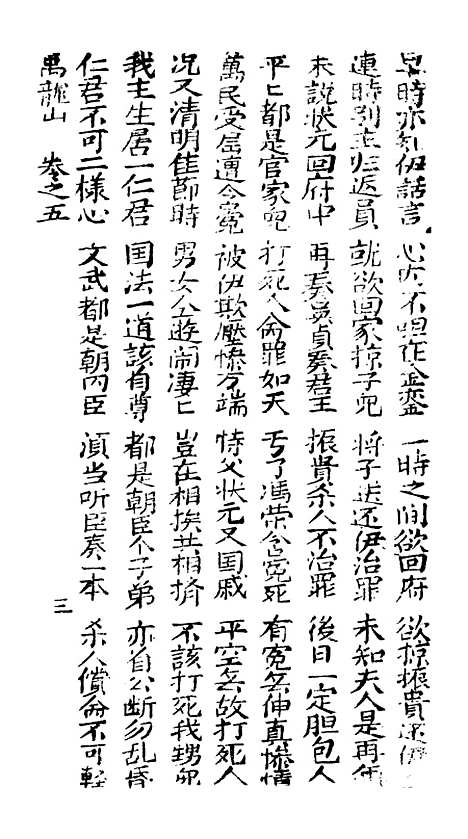 時亦知伊話言 心 不呾在金鑾 一時之间欲回府 欲掠振貴还伊
連時别主归返員 就欲囬家掠子兒 将子送还伊治罪 未知夫人是再
未説狀元回府中 再奏吴貞奏君王 振貴杀人不治罪 後日一定胆包人
平〻都是官家兒 打死人命罪如天 亏了馮荣含冤死 有冤無伸真惨情
萬民受屈遭含冤 被伊欺壓惨万端 恃父状元又国戚 平空無故打死人
况又清明佳節時 男女仝遊闹凄〻 豈在相挨共相擠 不該打死我甥兒
我主生居一仁君 国法一道該自尊 都是朝臣个子弟 亦自公断勿乱昏
仁君不可二樣心 文武都是朝内臣 湏当听臣奏一本 杀人償命不可輕
禹龍山 卷之五 三